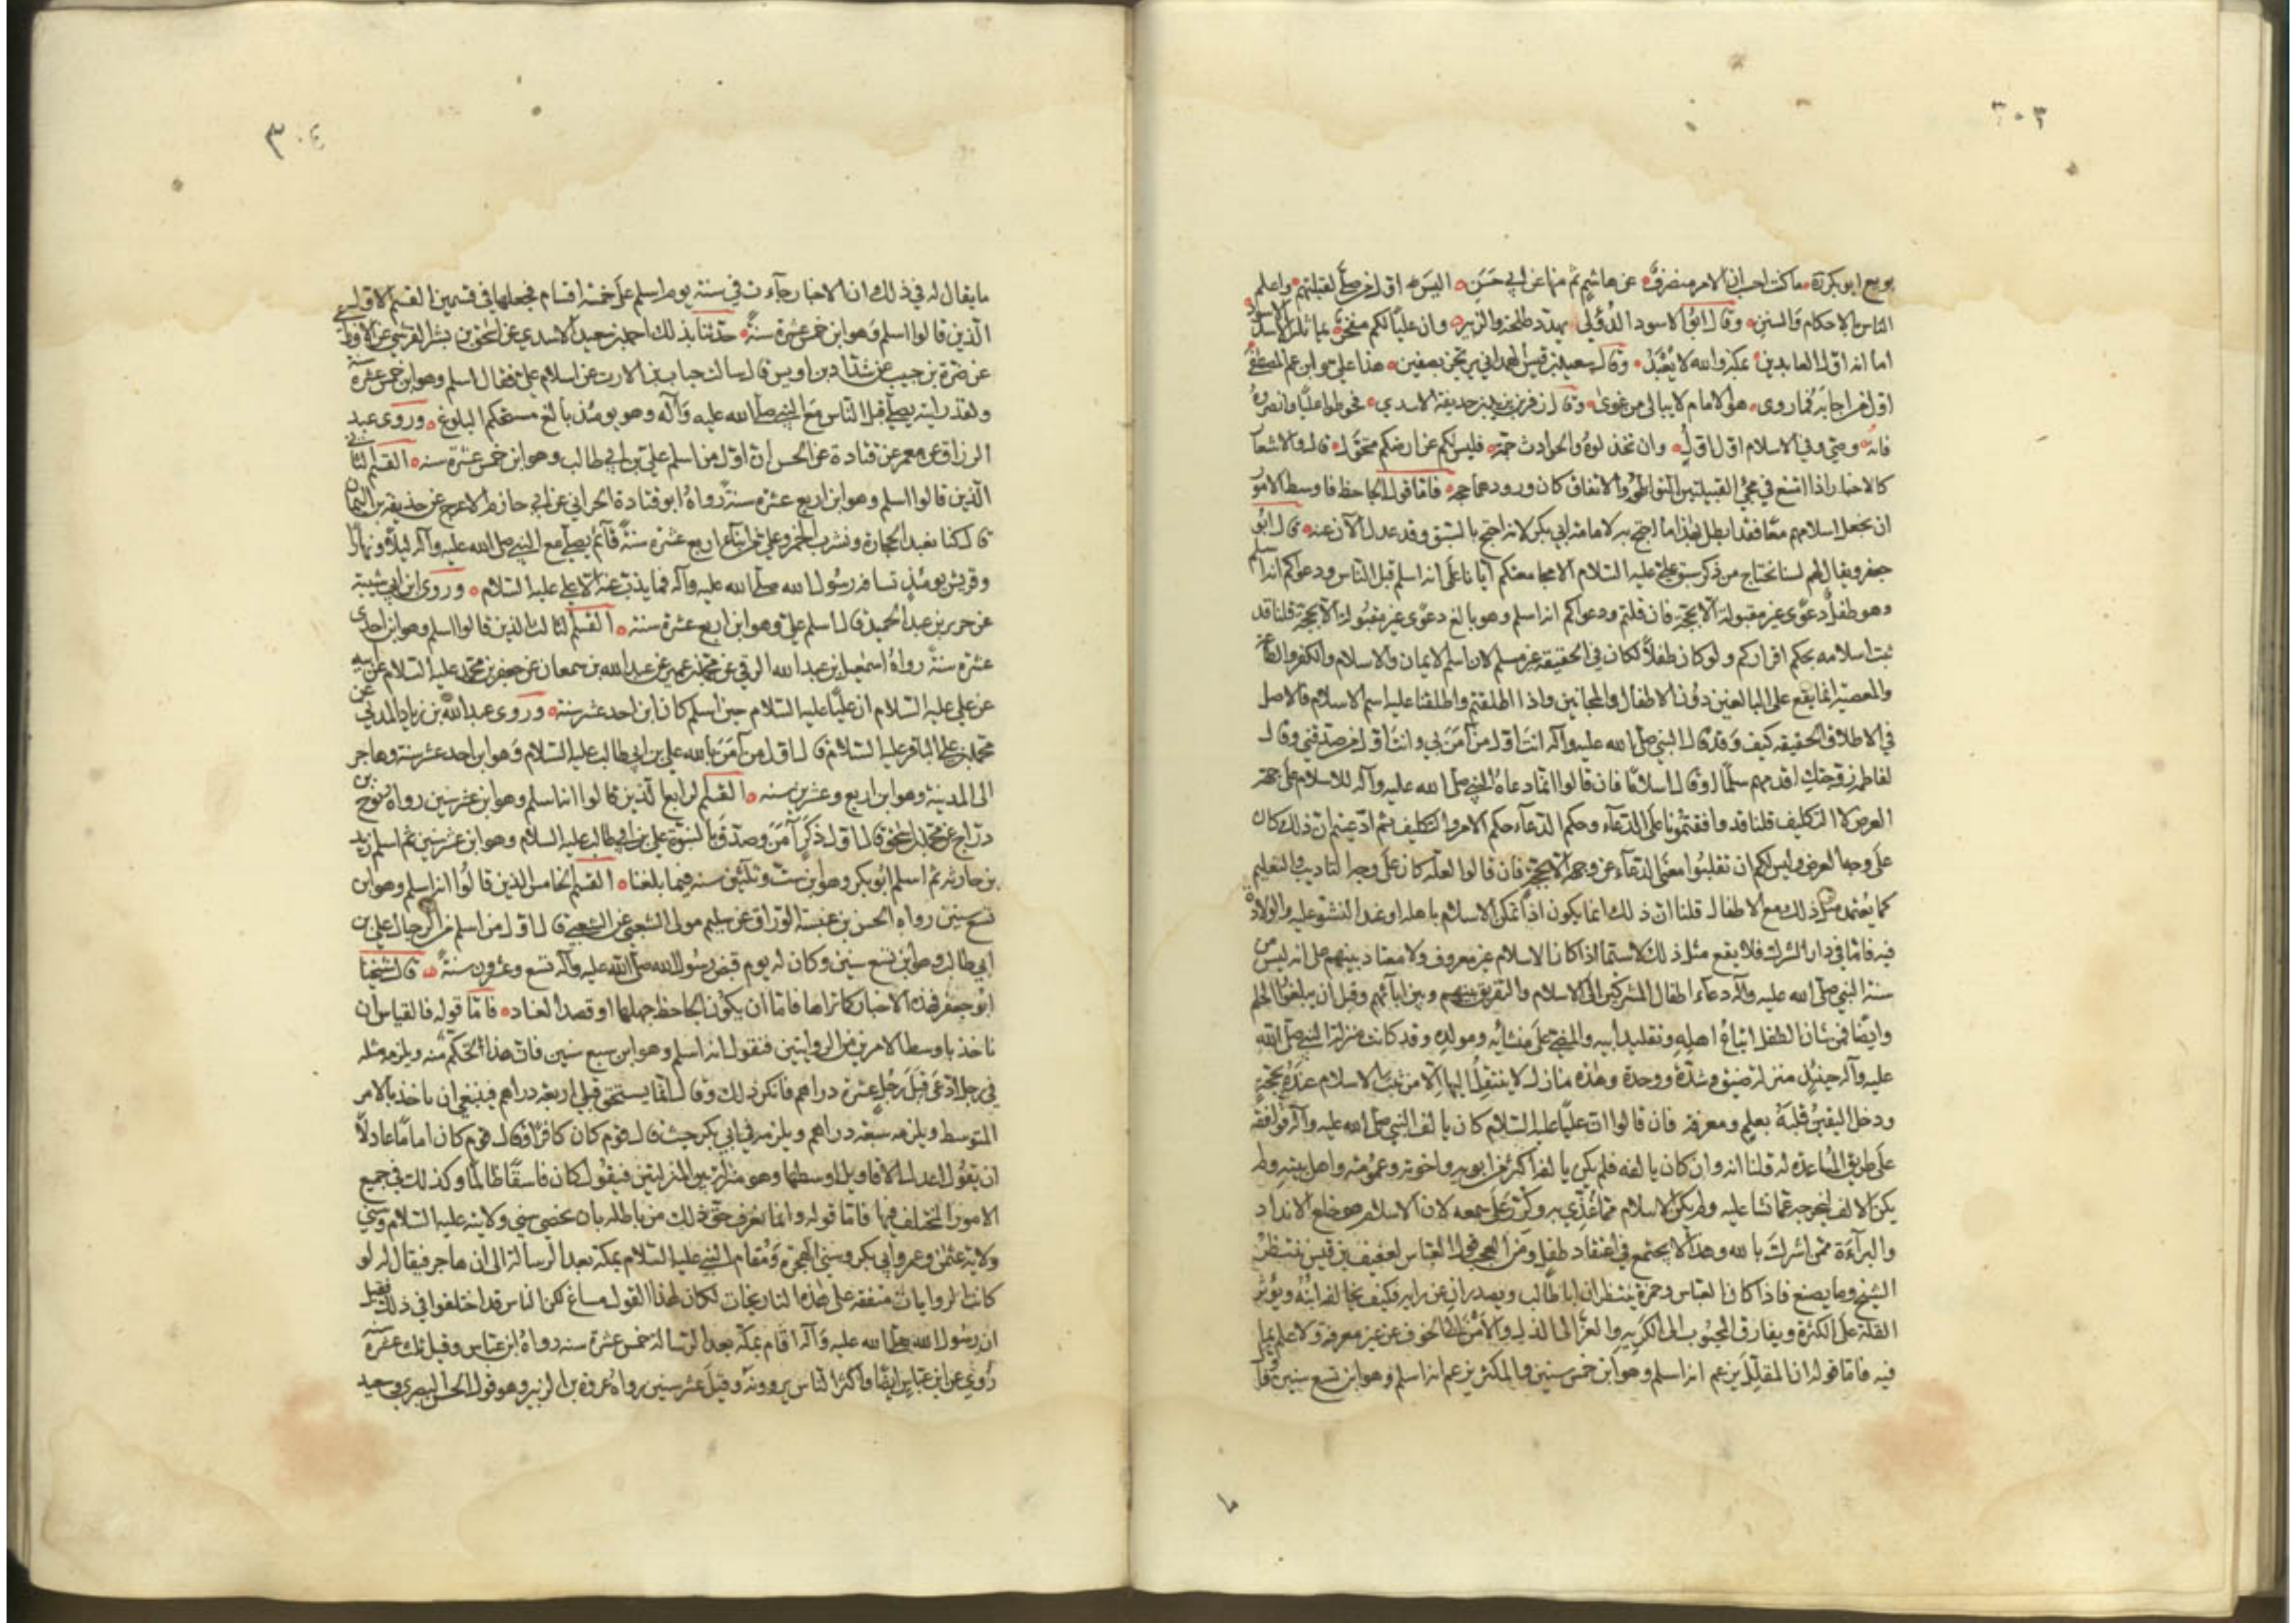 ٣٠٣
بويع ابو بكرة ما كنت احسب ان الامر منصرف عن هاشم ثم منها عن ابي حسن اليس اول من صلى لقبلتهم واعلم
الناس بالاحكام والسنن وقال ابو الاسود الدؤلي يهدد طلحة والزبير وان عليا لكم مفخر يماثله الاسد الاسود
اما انه اول العابدين بمكة والله لا يعبد وقال سعيد بن قيس الهمداني يرتجز بصفين هذا علي وابن عم المصطفى
اول من اجابه فيما روى هو الامام لا يبالي من غوى وقال زفر بن يزيد بن حذيفة الاسدي فحوطوا عليا وانصروه
فانه وصي وفي الاسلام اول اول وان تخذلوه والحوادث جمة فليس لكم عن ارضكم متحول قال والاشعار
كالاخبار اذا امتنع في مجئ القبيلتين التواطؤ والاتفاق كان ورودها حجة فاما قول الجاحظ فاوسط الامور
ان نجعل اسلامهم معا فقد ابطل بهذا ما احتج به لامامة ابي بكر لانه احتج بالسبق وقد عدل الآن عنه قال ابو
جعفر ويقال لهم لسنا نحتاج من ذكر سبق علي عليه السلام الا مجامعتكم ايانا على انه اسلم قبل الناس ودعواكم انه اسلم
وهو طفل دعوى غير مقبولة الا بحجة فان قلتم ودعواكم انه اسلم وهو بالغ دعوى غير مقبولة الا بحجة قلنا قد
ثبت اسلامه بحكم اقراركم ولو كان طفلا لكان في الحقيقة غير مسلم لان اسم الايمان والاسلام والكفر والطاعة
والمعصية انما يقع على البالغين دون الاطفال والمجانين واذا اطلقتم واطلقنا عليه اسم الاسلام فالاصل
في الاطلاق الحقيقة كيف وقد قال النبي صلى الله عليه وآله انت اول من آمن بي وانت اول من صدقني وقال
لفاطمة زوجتك اقدمهم سلما او قال اسلاما فان قالوا انما دعاه النبي صلى الله عليه وآله للاسلام على جهة
العرض لا التكليف قلنا قد وافقتمونا على الدعاء وحكم الدعاء حكم الامر والتكليف ثم ادعيتم ان ذلك كان
على وجه العرض وليس لكم ان تقلبوا معنى الدعاء عن وجهه الا بحجة فان قالوا لعله كان على وجه التاديب والتعليم
كما يعتمد مثل ذلك مع الاطفال قلنا ان ذلك انما يكون اذا تمكن الاسلام باهله او عند النشو عليه والولادة
فيه فاما في دار الشرك فلا يقع مثل ذلك لا سيما اذا كان الاسلام غير معروف ولا معتاد بينهم على انه ليس من
سنة النبي صلى الله عليه وآله دعاء اطفال المشركين الى الاسلام والتفريق بينهم وبين ابائهم وقبل ان يبلغوا الحلم
وايضا فمن شان الطفل اتباع اهله وتقليد ابيه والمضي على منشائه ومولده وقد كانت منزلة النبي صلى الله
عليه وآله حينئذ منزلة ضيق وشدة ووحدة وهذه منازل لا ينتقل اليها الا من ثبت الاسلام عنده بحجة
ودخل اليقين قلبه بعلم ومعرفة فان قالوا ان عليا عليه السلام كان يالف النبي صلى الله عليه وآله فوافقه
على طريق المساعدة له قلنا انه وان كان يالفه فلم يكن يالفه اكثر من ابويه واخوته وعمومته واهل بيته ولم
يكن الالف ليخرجه عما نشا عليه ولم يكن الاسلام مما غذي به وكرر على سمعه لان الاسلام هو خلع الانداد
والبرآءة ممن اشرك بالله وهذا لا يجتمع في اعتقاد طفل ومن العجب قول العباس لعفيف بن قيس ننتظر
الشيخ وما يصنع فاذا كان العباس وحمزة ينتظران ابا طالب ويصدران عن رايه فكيف يخالفه ابنه ويؤثر
القلة على الكثرة ويفارق المحبوب الى المكروه والعز الى الذل والامن الى الخوف عن غير معرفة ولا علم بما
فيه فاما قوله ان المقلل يزعم انه اسلم وهو ابن خمس سنين والمكثر يزعم انه اسلم وهو ابن تسع سنين فاول
٣٠٤
ما يقال له في ذلك ان الاخبار جاءت في سنة يوم اسلم على خمسة اقسام فجعلها في قسمين القسم الاول
الذين قالوا اسلم وهو ابن خمس عشرة سنة حدثنا بذلك احمد بن سعيد الاسدي عن اسحق بن بشر القرشي عن الاوزاعي
عن ضمرة بن حبيب عن شداد بن اوس قال سالت خباب بن الارت عن اسلام علي فقال اسلم وهو ابن خمس عشرة سنة
ولقد رايته يصلي قبل الناس مع النبي صلى الله عليه وآله وهو يومئذ بالغ مستحكم البلوغ وروى عبد
الرزاق عن معمر عن قتادة عن الحسن ان اول من اسلم علي بن ابي طالب وهو ابن خمس عشرة سنه القسم الثاني
الذين قالوا اسلم وهو ابن اربع عشرة سنة رواه ابو قتادة الحراني عن ابي حازم الاعرج عن حذيفة بن اليمان
قال كنا نعبد الحجارة ونشرب الخمر وعلي من ابناء اربع عشرة سنة قائم يصلي مع النبي صلى الله عليه وآله ليلا ونهارا
وقريش يومئذ تسافه رسول الله صلى الله عليه وآله فما يذب عنه الا علي عليه السلام وروى ابن ابي شيبة
عن جرير بن عبد الحميد قال اسلم علي وهو ابن اربع عشرة سنة القسم الثالث الذين قالوا اسلم وهو ابن احدى
عشرة سنة رواه اسمعيل بن عبد الله الرقي عن محمد بن عمر عن عبد الله بن سمعان عن جعفر بن محمد عليه السلام عن ابيه
عن علي عليه السلام ان عليا عليه السلام حين اسلم كان ابن احد عشر سنة وروى عبد الله بن زياد المدني عن
محمد بن علي الباقر عليه السلام قال اول من آمن بالله علي بن ابي طالب عليه السلام وهو ابن احد عشر سنة وهاجر
الى المدينة وهو ابن اربع وعشرين سنه القسم الرابع الذين قالوا انه اسلم وهو ابن عشر سنين رواه نوح بن
دراج عن محمد بن اسحق قال اول ذكر آمن وصدق بالنبوة علي بن ابي طالب عليه السلام وهو ابن عشر سنين ثم اسلم زيد
بن حارثه ثم اسلم ابو بكر وهو ابن ست وثلثين سنه فيما بلغنا القسم الخامس الذين قالوا انه اسلم وهو ابن
تسع سنين رواه الحسن بن عنبسة الوراق عن سليم مولى الشعبي عن الشعبي قال اول من اسلم من الرجال علي بن
ابي طالب وهو ابن تسع سنين وكان له يوم قبض رسول الله صلى الله عليه وآله تسع وعشرون سنة قال شيخنا
ابو جعفر فهذه الاخبار كما تراها فاما ان يكون الجاحظ جهلها او قصد العناد فاما قوله فالقياس ان
ناخذ باوسط الامرين من الروايتين فنقول انه اسلم وهو ابن سبع سنين فان هذا تحكم منه ويلزمه مثله
في رجل ادعى قبل رجل عشرة دراهم فانكر ذلك وقال انما يستحق قبلي اربعة دراهم فينبغي ان ياخذ بالامر
المتوسط ويلزمه سبعه دراهم ويلزمه في ابي بكر حيث قال قوم كان كافرا وقال قوم كان اماما عادلا
ان يقول اعدل الاقاويل اوسطها وهو منزلة بين المنزلتين فيقول كان فاسقا ظالما وكذلك في جميع
الامور المختلف فيها فاما قوله وانما يعرف حق ذلك من باطله بان نحصي سني ولايته عليه السلام وسني
ولاية عثمن وعمر وابي بكر وسني الهجرة ومقام النبي عليه السلام بمكة بعد الرسالة الى ان هاجر فيقال له لو
كانت الروايات متفقه على هذه التاريخات لكان لهذا القول مساغ لكن الناس قد اختلفوا في ذلك فقيل
ان رسول الله صلى الله عليه وآله اقام بمكة بعد الرسالة خمس عشرة سنه رواه ابن عباس وقيل ثلث عشرة سنة
روي عن ابن عباس ايضا واكثر الناس يروونه وقيل عشر سنين رواه عروة بن الزبير وهو قول الحسن البصري وسعيد